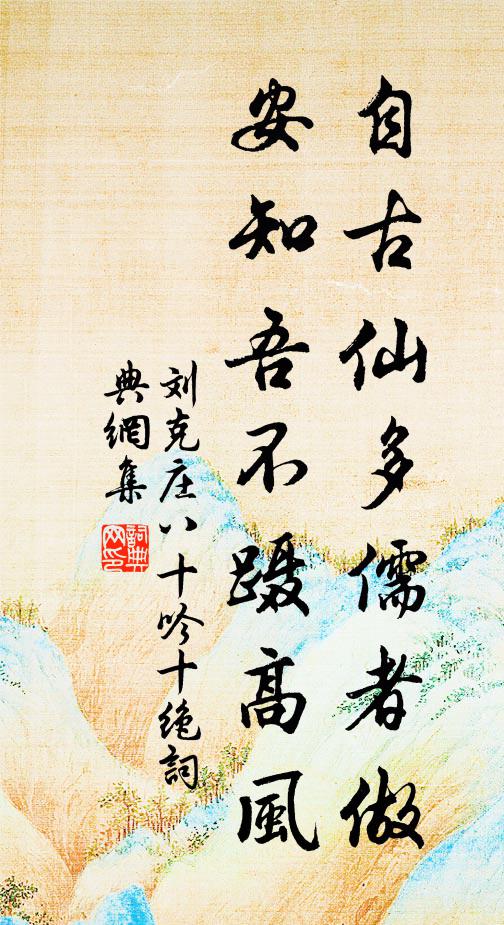 自古仙多儒者做
安知吾不蹑高風
刘克庄八十吟十绝詞
典網集
詞典